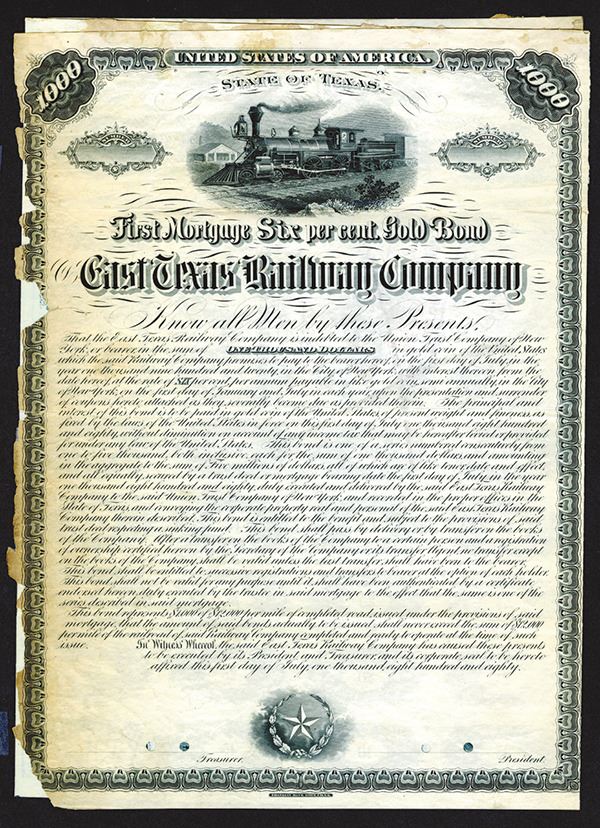 UNITED STATES OF AMERICA.
1000
1000
STATE OF TEXAS.
First Mortgage Six per cent. Gold Bond
OF East Texas Railway Company
Know all Men by these Presents,
That the East Texas Railway Company is indebted to the Union Trust Company of New
York, or bearer, in the sum of ONE THOUSAND DOLLARS in gold coin of the United States
which the said Railway Company promises to pay to said bearer, on the first day of July, in the
year one thousand nine hundred and twenty, in the City of New York, with interest thereon from the
date hereof, at the rate of six per cent per annum payable in like gold coin semi annually, in the City
of New York, on the first day of January and July in each year, upon the presentation and surrender
of coupons hereto attached as they severally become due as provided therein. The principal and
interest of this bond is to be paid in gold coin of the United States, of present weight and fineness, as
fixed by the laws of the United States in force on this first day of July one thousand eight hundred
and eighty, without diminution on account of any income tax that may be hereafter levied or provided
for under any law of the United States. This bond is one of a series, numbered consecutively from
one to five thousand, both inclusive, each for the sum of one thousand dollars and amounting
in the aggregate to the sum of Five millions of dollars, all of which are of like tenor date and effect,
and all equally secured by a trust deed or mortgage bearing date the first day of July, in the year
one thousand eight hundred and eighty, duly executed and delivered by the said East Texas Railway
Company to the said Union Trust Company of New York, and recorded in the proper offices in the
State of Texas and conveying the corporate property real and personal of the said East Texas Railway
Company therein described. This bond is entitled to the benefit and subject to the provisions of said
trust deed creating a sinking fund. This bond shall pass by delivery or by transfer on the books
of the Company. After a transfer on the books of the Company to a certain person and a registration
of ownership certified hereon by the Secretary of the Company or its transfer agent, no transfer except
on the books of the Company, shall be valid unless the last transfer shall have been to the bearer.
This bond shall be subject to successive registrations and transfers to bearer at the option of each holder.
This bond shall not be valid for any purpose until it shall have been authenticated by a certificate
endorsed hereon, duly executed by the trustee in said mortgage to the effect that the same is one of the
series described in said mortgage.
This bond represents $1000 of $12,000 per mile of completed road, issued under the provisions of said
mortgage, that the amount of said bonds actually to be issued shall never exceed the sum of $12,000
per mile of the railroad of said Railway Company completed and ready to operate at the time of such
issue. In Witness Whereof, the said East Texas Railway Company has caused these presents
to be executed by its President and Treasurer, and its corporate seal to be hereto
affixed this first day of July one thousand eight hundred and eighty.
Treasurer.
President.